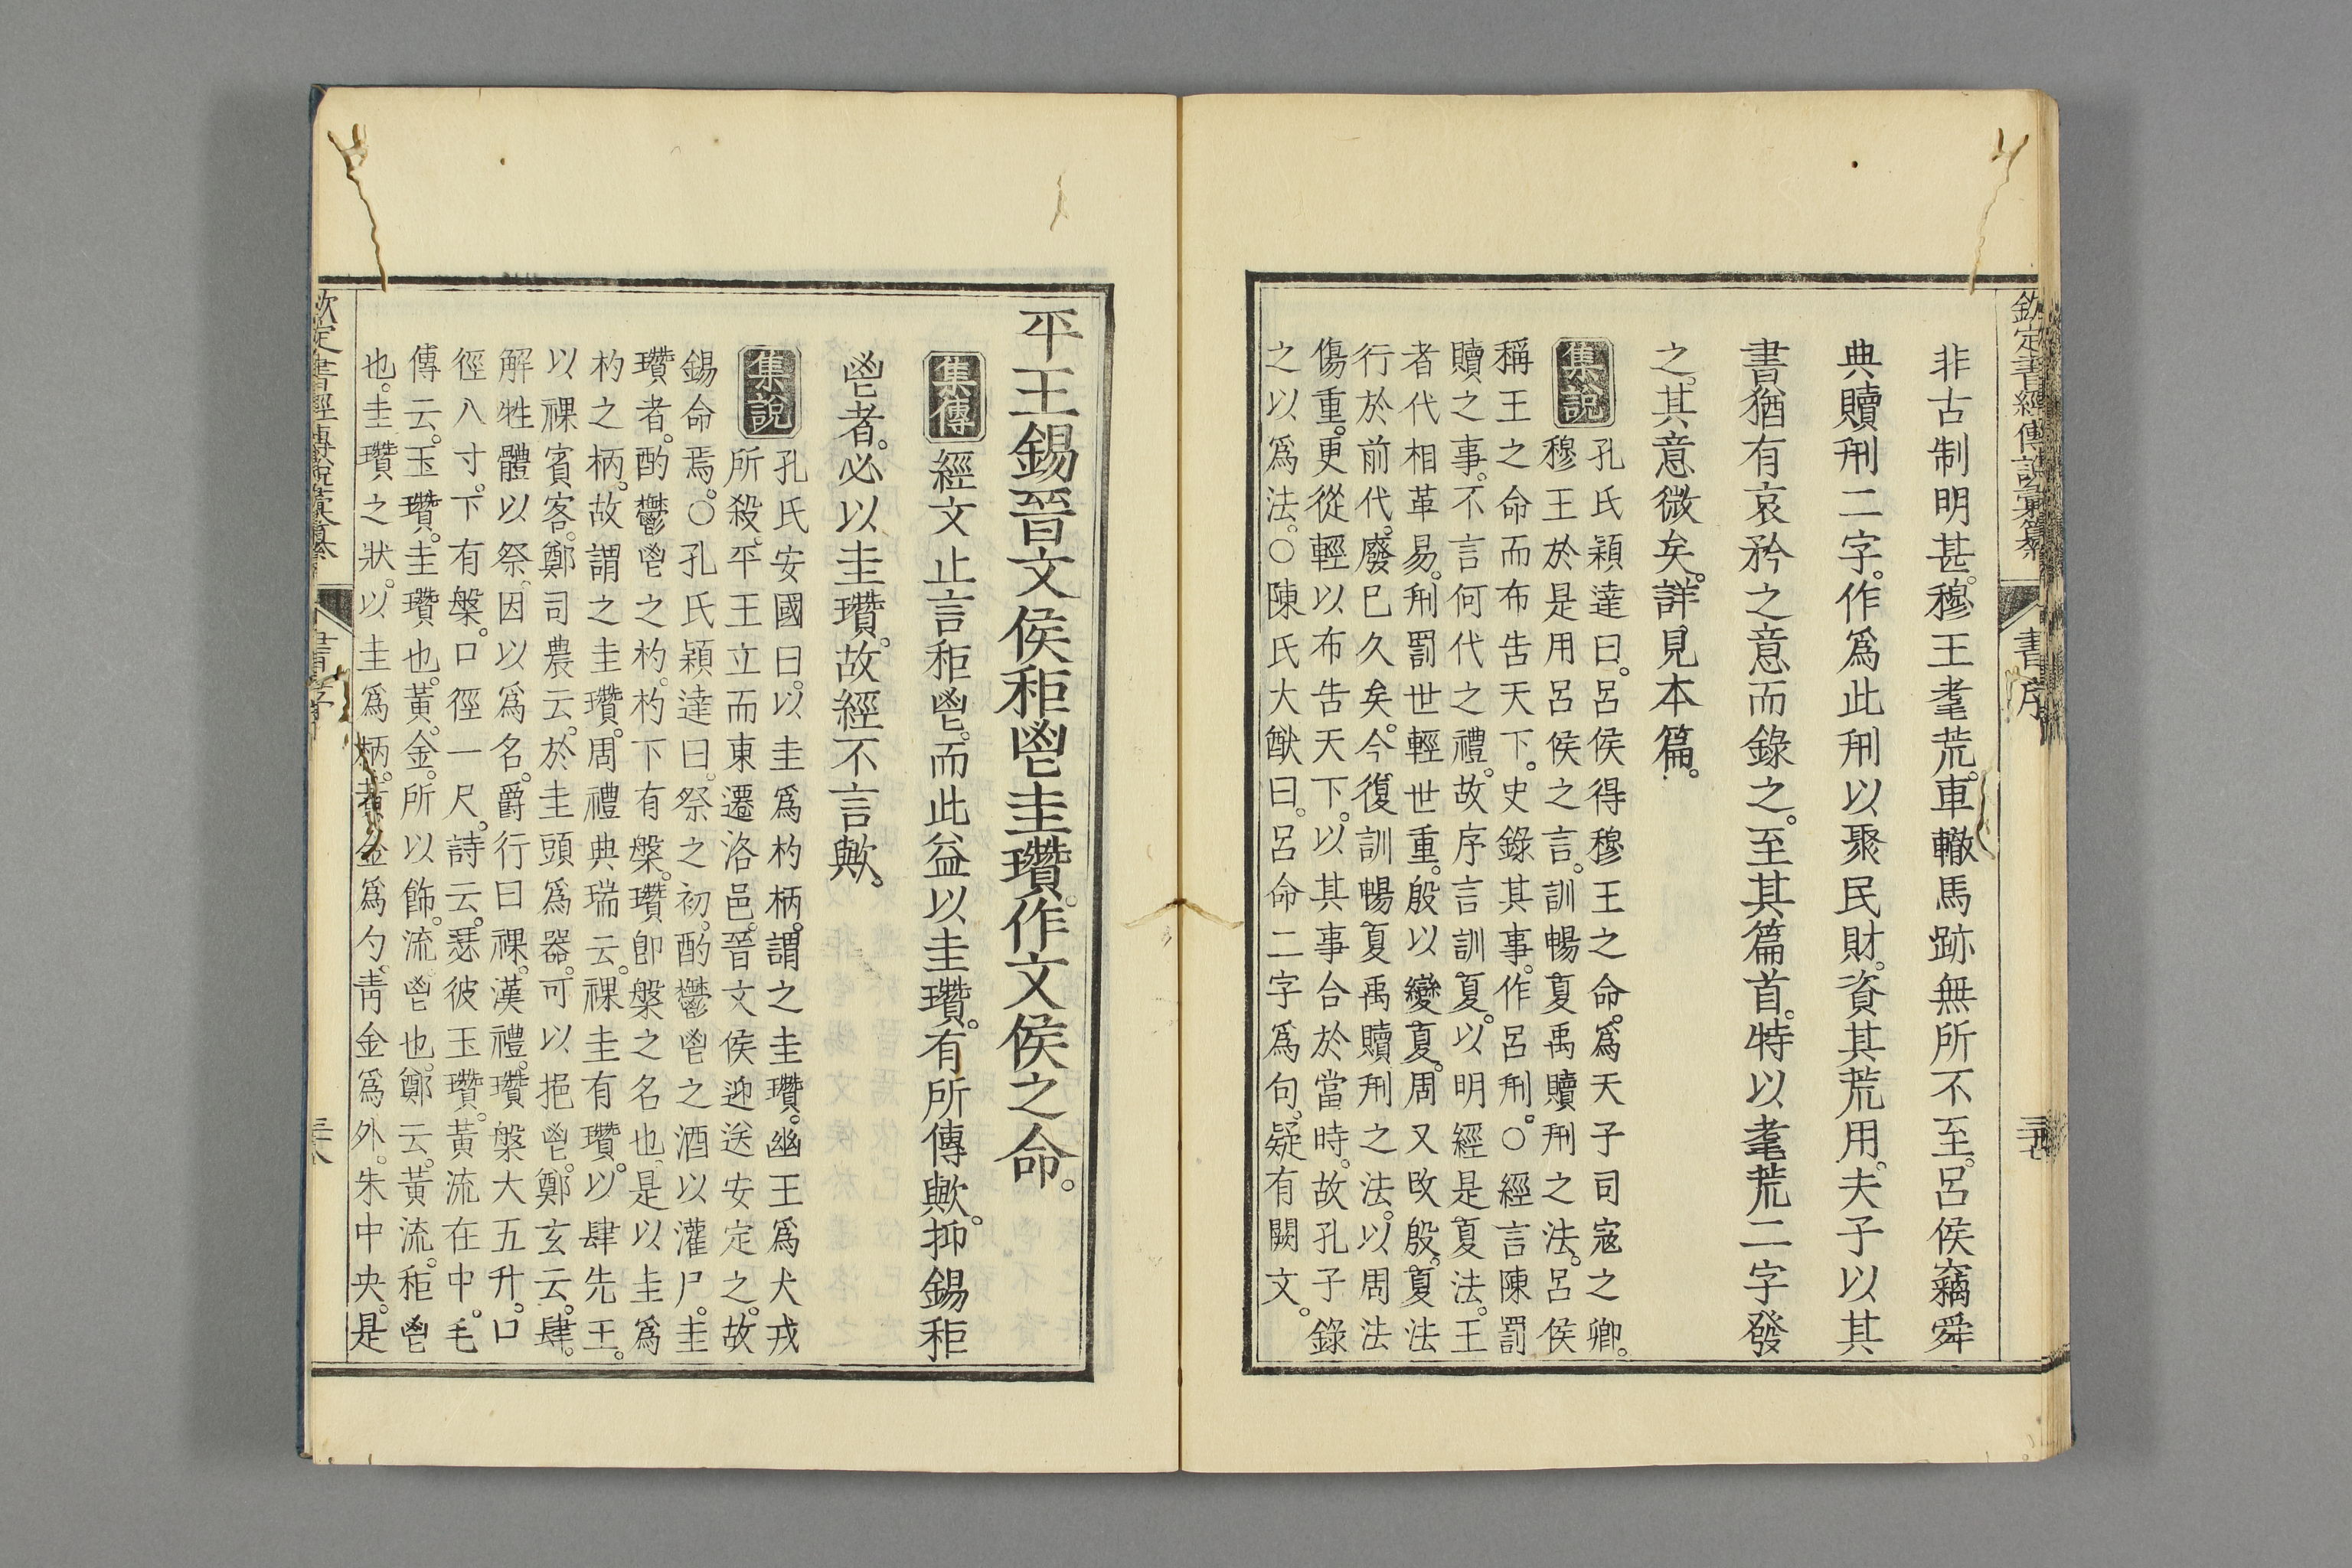 欽定書經傳說彙纂
書序
非古制明甚。穆王耄荒。車轍馬跡無所不至。呂侯竊舜
典贖刑二字。作爲此刑以聚民財。資其荒用。夫子以其
書猶有哀矜之意而錄之。至其篇首。特以耄荒二字發
之。其意微矣。詳見本篇。
集說
孔氏穎達曰。呂侯得穆王之命。爲天子司寇之卿。
穆王於是用呂侯之言。訓暢夏禹贖刑之法。呂侯
稱王之命而布告天下。史錄其事。作呂刑。○經言陳罰
贖之事。不言何代之禮。故序言訓夏。以明經是夏法。王
者代相革易。刑罰世輕世重。殷以變夏。周又改殷。夏法
行於前代。廢已久矣。今復訓暢夏禹贖刑之法。以周法
傷重。更從輕以布告天下。以其事合於當時。故孔子錄
之以爲法。○陳氏大猷曰。呂命二字爲句。疑有闕文。
平王錫晉文侯秬鬯圭瓚。作文侯之命。
集傳
經文止言秬鬯。而此益以圭瓚。有所傳歟。抑錫秬
鬯者。必以圭瓚。故經不言歟。
集說
孔氏安國曰。以圭爲杓柄。謂之圭瓚。幽王爲犬戎
所殺。平王立而東遷洛邑。晉文侯迎送安定之。故
錫命焉。○孔氏穎達曰。祭之初。酌鬱鬯之酒以灌尸。圭
瓚者。酌鬱鬯之杓。杓下有槃。瓚卽槃之名也。是以圭爲
杓之柄。故謂之圭瓚。周禮典瑞云。祼圭有瓚。以肆先王。
以祼賓客。鄭司農云。於圭頭爲器。可以挹鬯。鄭玄云。肆。
解牲體以祭。因以爲名。爵行曰祼。漢禮。瓚槃大五升。口
徑八寸。下有槃。口徑一尺。詩云。瑟彼玉瓚。黃流在中。毛
傳云。玉瓚。圭瓚也。黃。金。所以飾。流鬯也。鄭云。黃流。秬鬯
也。圭瓚之狀。以圭爲柄。黃金爲勺。靑金爲外。朱中央。是
欽定書經傳說彙纂
書序
三八